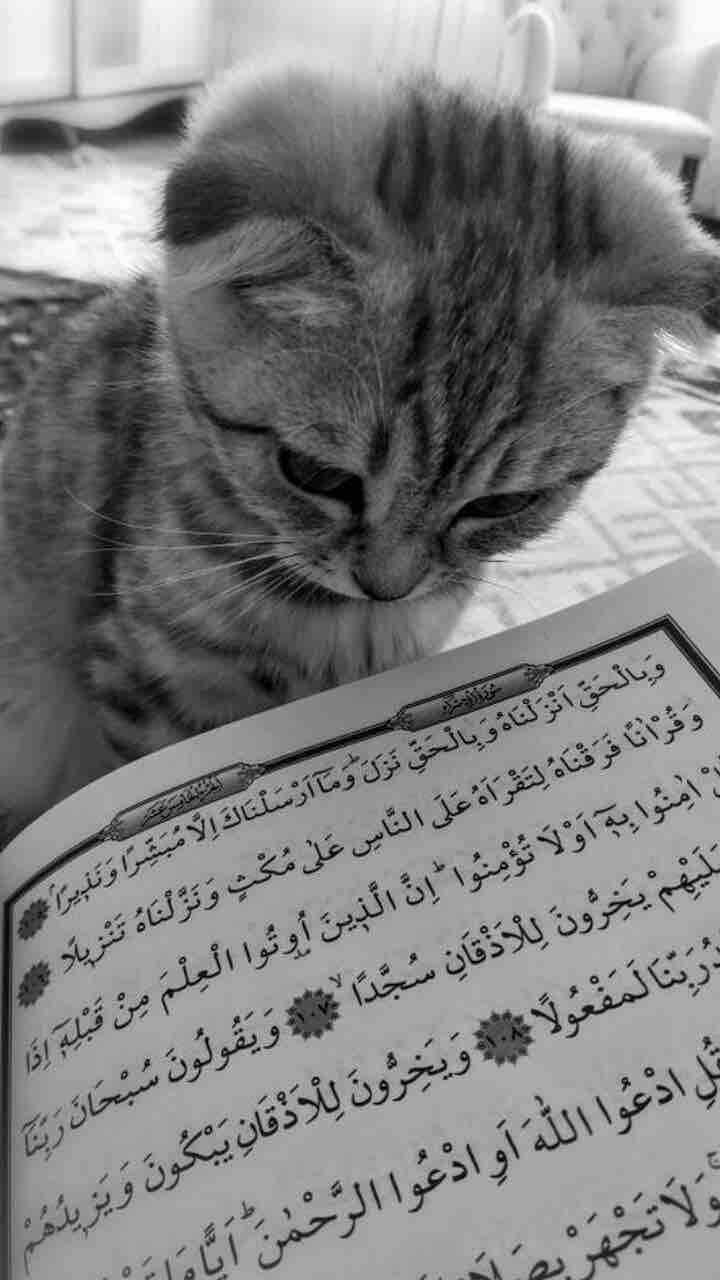 سُورَةُ الْاِسْرَاءِ
اَلْجُزْءُ الْخَامِسَ عَشَرَ
وَبِالْحَقِّ اَنْزَلْنَاهُ وَبِالْحَقِّ نَزَلَۜ وَمَٓا اَرْسَلْنَاكَ اِلَّا مُبَشِّرًا وَنَذِيرًاۢ
وَقُرْاٰنًا فَرَقْنَاهُ لِتَقْرَاَهُ عَلَى النَّاسِ عَلٰى مُكْثٍ وَنَزَّلْنَاهُ تَنْزِيلًا
اٰمِنُوا بِهِٓ اَوْ لَا تُؤْمِنُواۜ اِنَّ الَّذِينَ اُوتُوا الْعِلْمَ مِنْ قَبْلِهِٓ اِذَا
عَلَيْهِمْ يَخِرُّونَ لِلْاَذْقَانِ سُجَّدًاۙ ١٠٧ وَيَقُولُونَ سُبْحَانَ رَبِّنَٓا
رَبِّنَا لَمَفْعُولًا ١٠٨ وَيَخِرُّونَ لِلْاَذْقَانِ يَبْكُونَ وَيَزِيدُهُمْ
قُلِ ادْعُوا اللّٰهَ اَوِ ادْعُوا الرَّحْمٰنَۜ اَيًّا مَا
وَلَا تَجْهَرْ